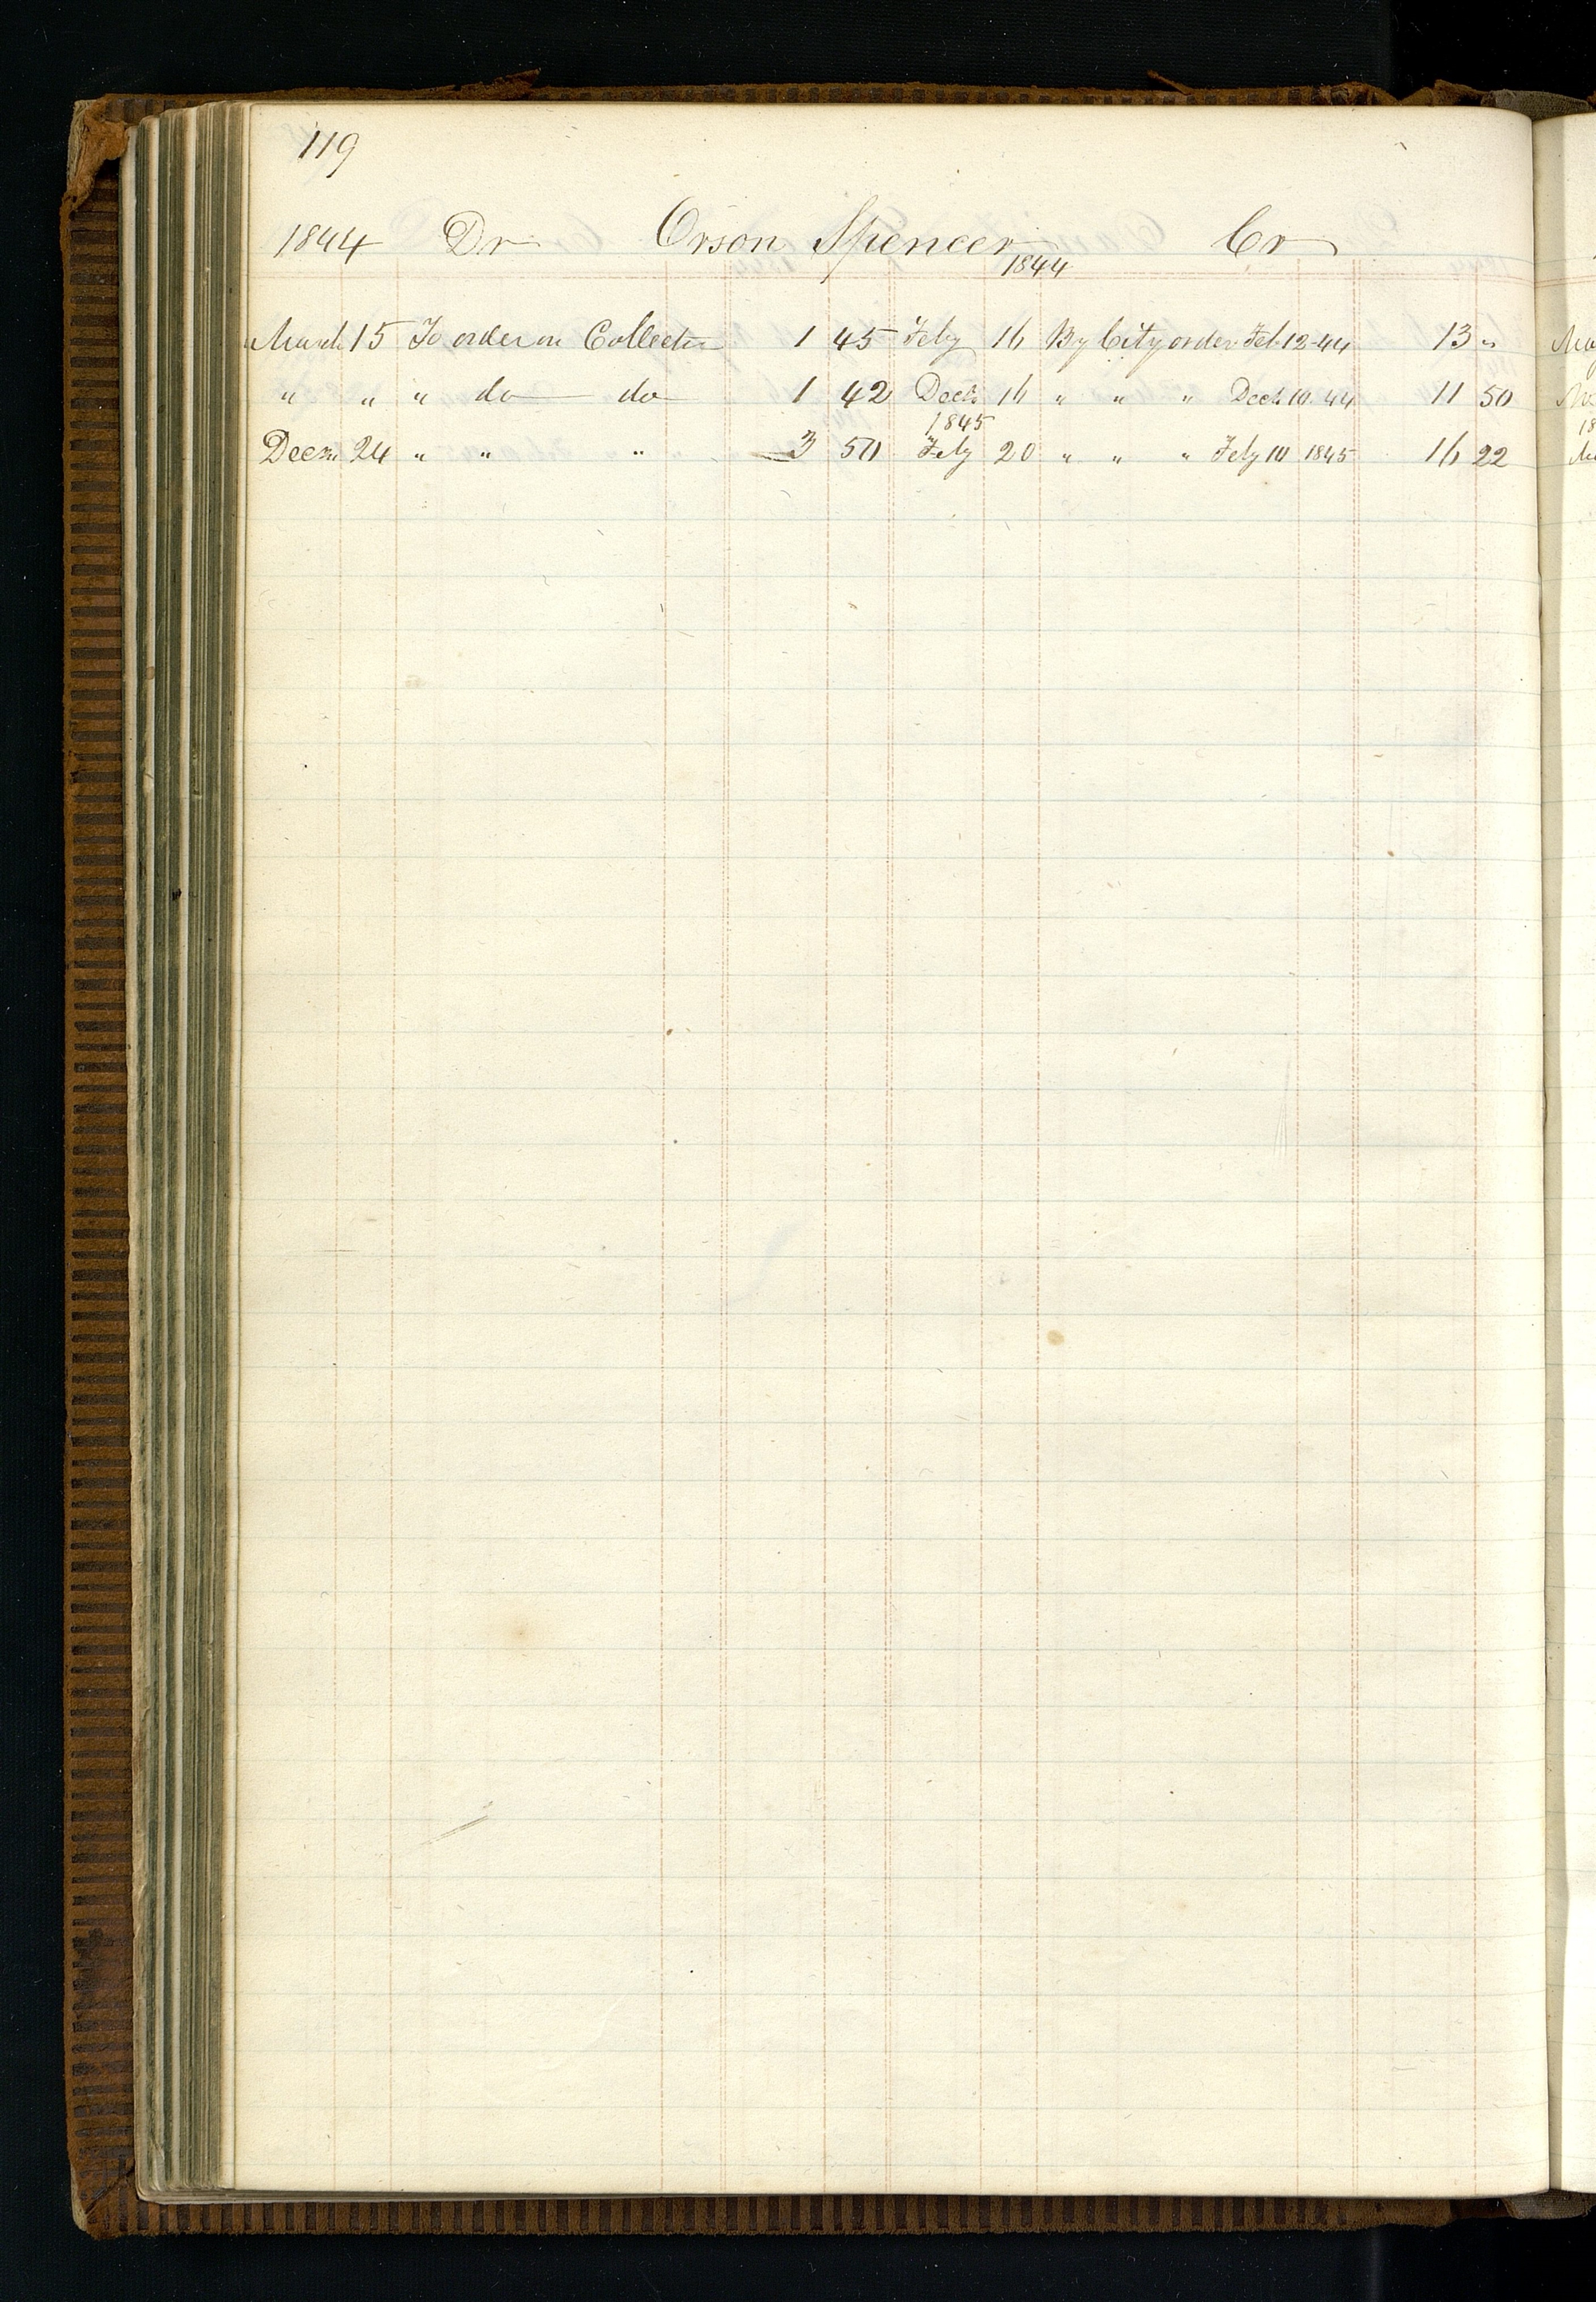 119
1844 Dr Orson Spencer Cr
1844
March 15 To order on Collector 1 45 Feby 16 By City order Feb. 12 - 44 13 "
" " " do do 1 42 Decr 16 " " " Decr 10. 44 11 50
1845
Decm 24 " " " 3 50 Feby 20 " " " Feby 10 1845 16 22